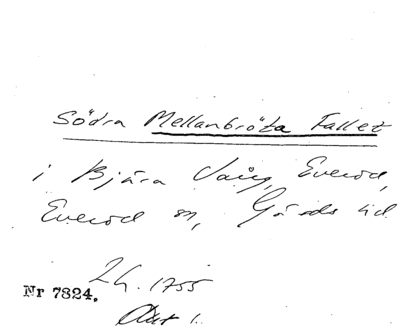 Södra Mellanbröta Fallet
i Bjära Vång, Everöd,
Everöd sn, Gärds hd
24. 1755
Nr 7824.
Akt 1.